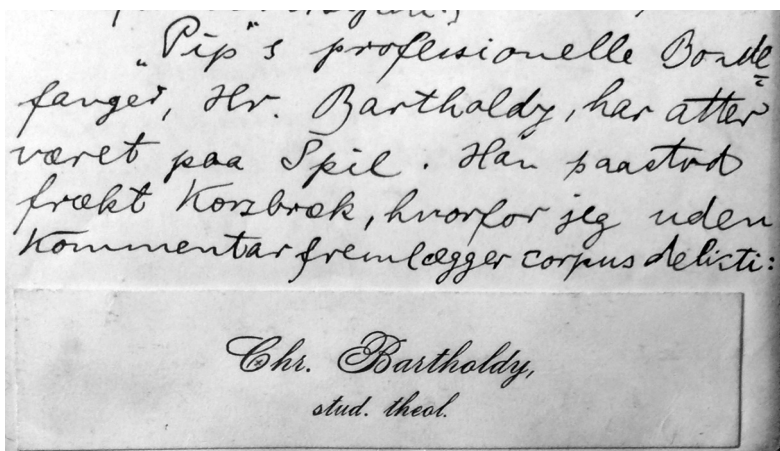 „Pip"s professionelle Bonde=
fanger, Hr. Bartholdy, har atter
været paa Spil. Han paastod
frækt Korsbræk, hvorfor jeg uden
Kommentar fremlægger corpus delicti:
Chr. Bartholdy,
stud. theol.